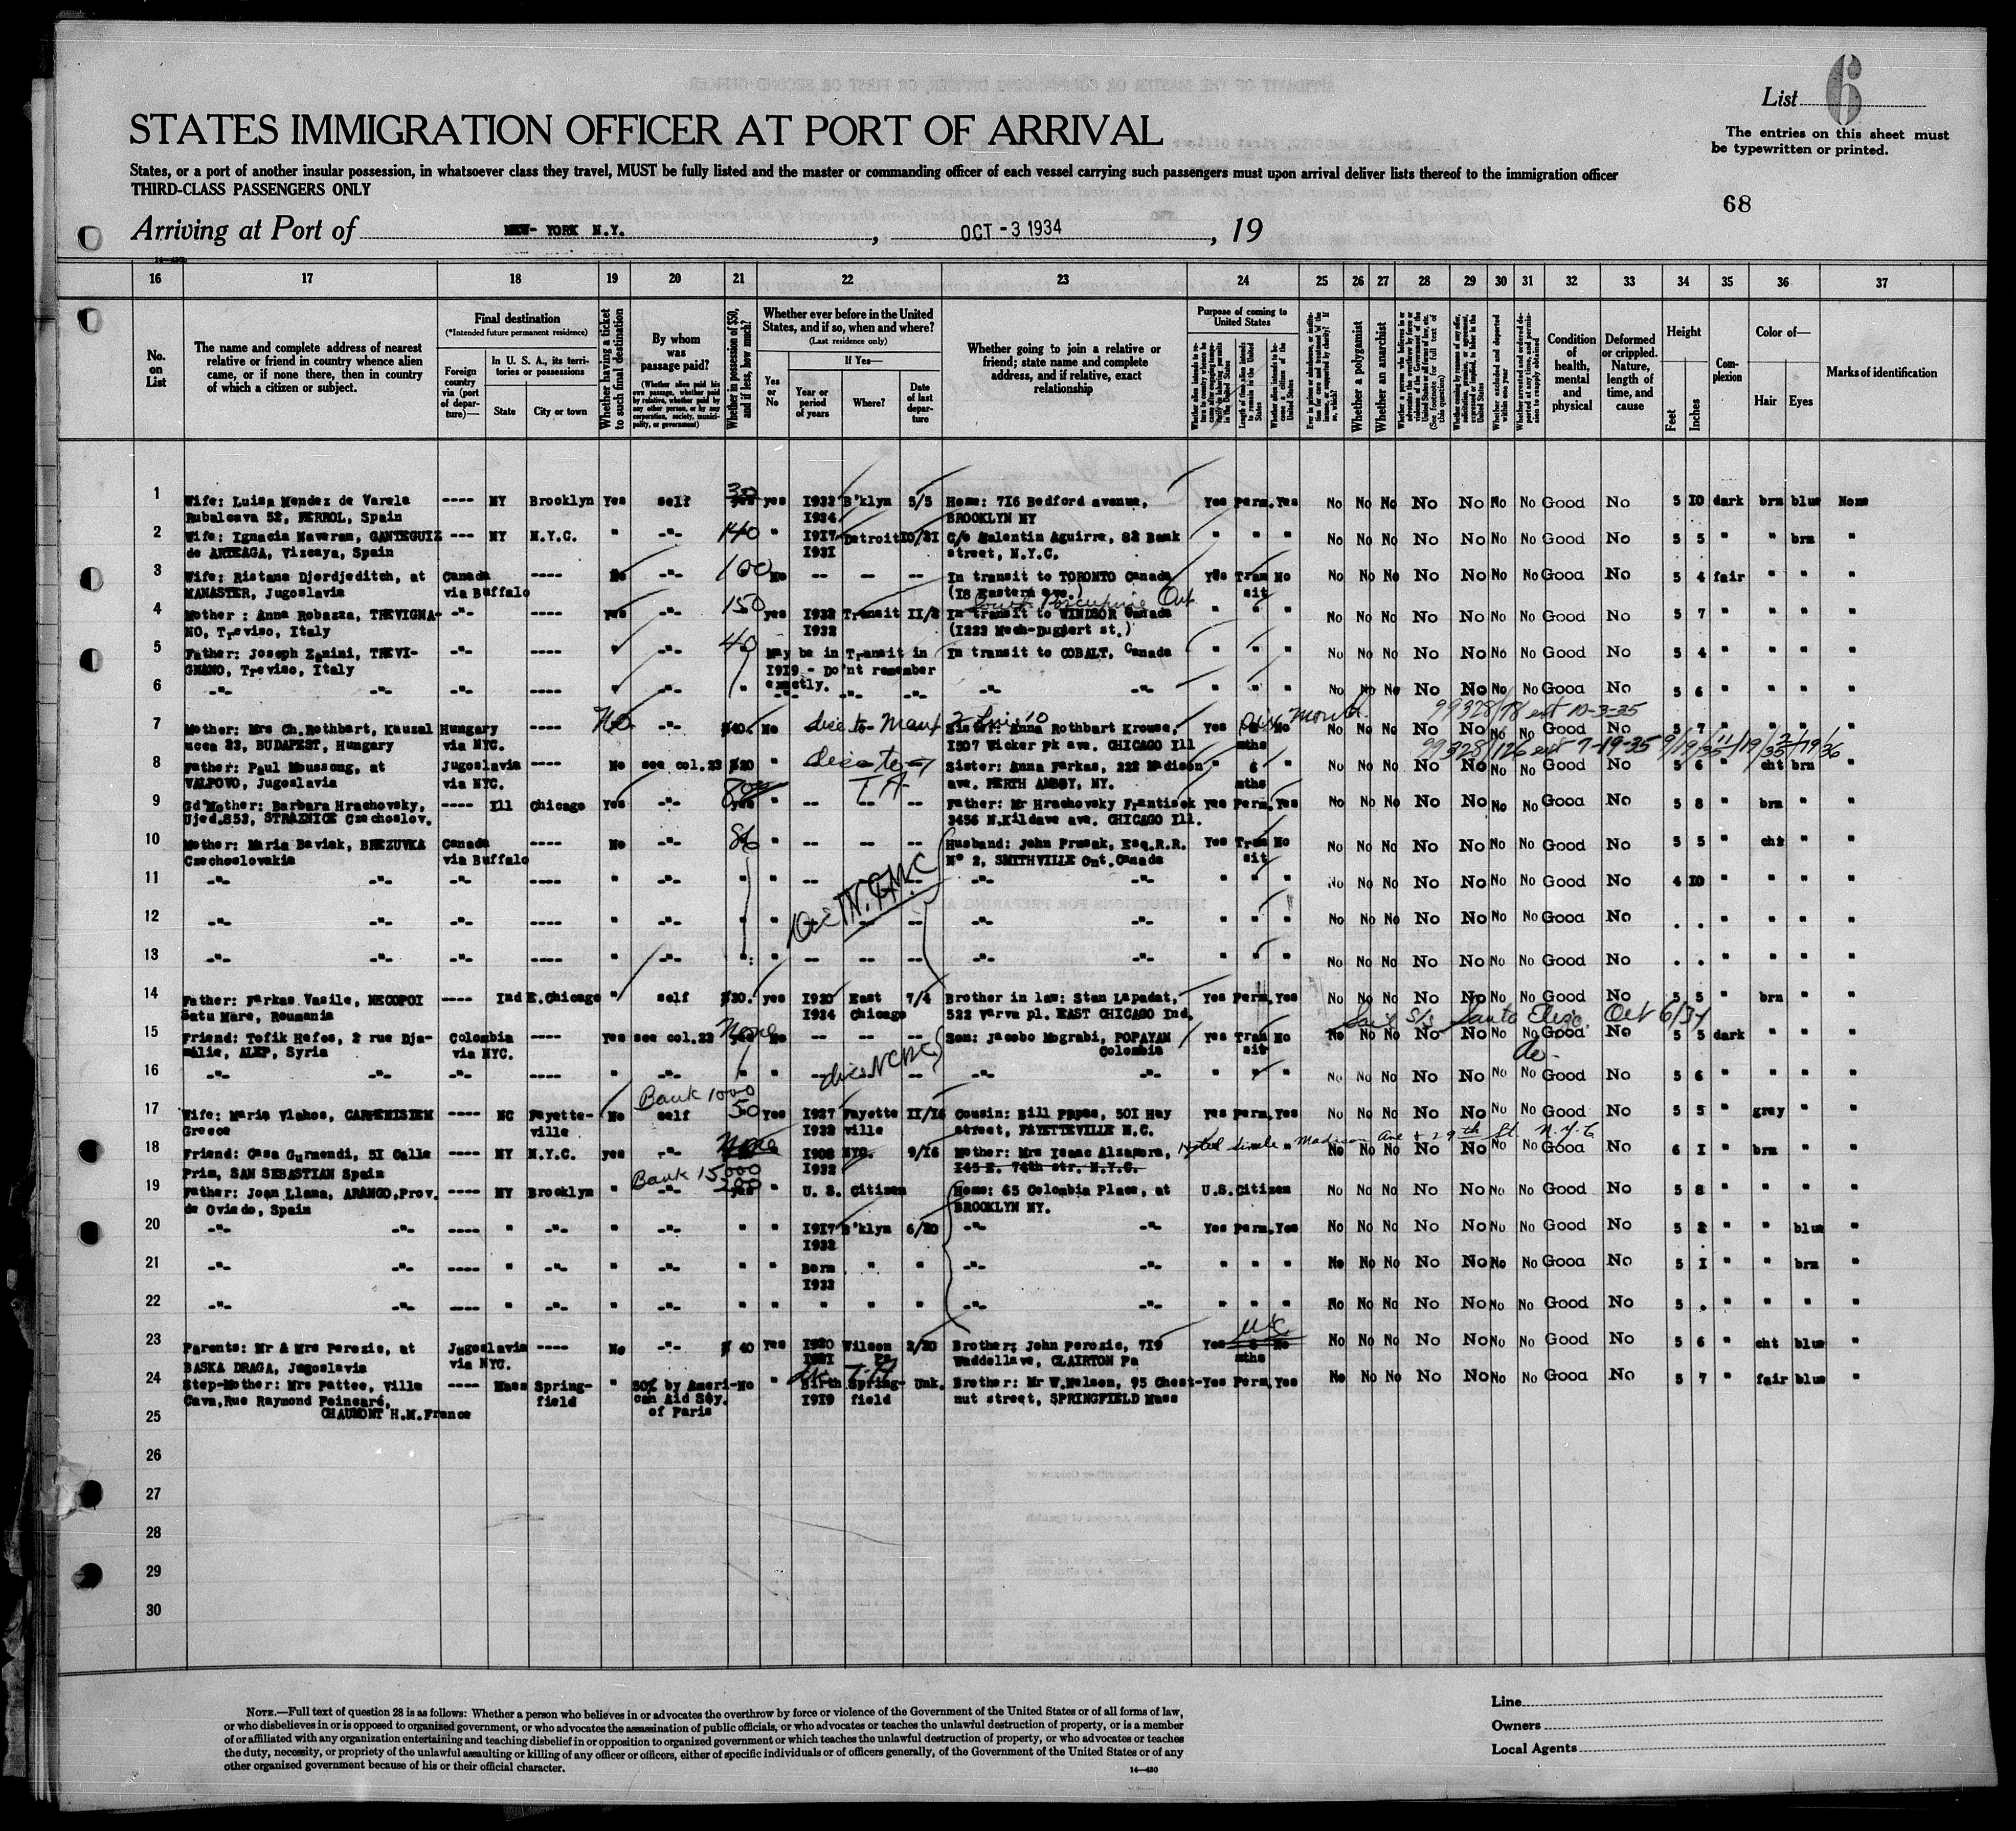 List 6
The entries on this sheet must
be typewritten or printed.
STATES IMMIGRATION OFFICER AT PORT OF ARRIVAL
States, or a port of another insular possession, in whatsoever class they travel, MUST be fully listed and the master or commanding officer of each vessel carrying such passengers must upon arrival deliver lists thereof to the immigration officer
THIRD-CLASS PASSENGERS ONLY
68
Arriving at Port of NEW-YORK N.Y. , OCT -3 1934 , 19
16 17 18 19 20 21 22 23 24 25 26 27 28 29 30 31 32 33 34 35 36 37
No. on List
The name and complete address of nearest relative or friend in country whence alien came, or if none there, then in country of which a citizen or subject.
Final destination
(*Intended future permanent residence)
Foreign country via (port of departure)—
In U. S. A., its territories or possessions
State
City or town
Whether having a ticket to such final destination
By whom was passage paid?
(Whether alien paid his own passage, whether paid by relative, whether paid by any other person, or by any corporation, society, municipality, or government)
Whether in possession of $50, and if less, how much?
Whether ever before in the United States, and if so, when and where?
(Last residence only)
Yes or No
If Yes—
Year or period of years
Where?
Date of last departure
Whether going to join a relative or friend; state name and complete address, and if relative, exact relationship
Purpose of coming to United States
Length of time alien intends to remain in the United States
Whether alien intends to become a citizen of the United States
Whether a polygamist
Whether an anarchist
Condition of health, mental and physical
Deformed or crippled. Nature, length of time, and cause
Height
Feet
Inches
Complexion
Color of—
Hair
Eyes
Marks of identification
1 Wife: Luisa Mendez de Varela ---- NY Brooklyn Yes self 30 yes 1932 B'klyn 5/5 Home: 716 Bedford avenue, Yes Perm. Yes No No No No No No No Good No 5 10 dark brn blue None
Rubalcava 52, FERROL, Spain 1934 BROOKLYN NY
2 Wife: Ignacia Naveran, GANTEGUIZ --- NY N.Y.C. " -"- 140 " 1917 Detroit 10/31 C/o Valentin Aguirre, 82 Bank " " " No No No No No No No Good No 5 5 " " brn "
de ARTEAGA, Vizcaya, Spain 1931 street, N.Y.C.
3 Wife: Ristana Djordjeditch, at Canada ---- No -"- 100 No -- -- -- In transit to TORONTO Canada Yes Tran No No No No No No No No Good No 5 4 fair " " "
MANASTER, Jugoslavia via Buffalo (18 Eastern ave.) sit
South Porcupine Ont
4 Mother : Anna Robazza, TREVIGNA- -"- ---- yes -"- 150 yes 1932 Transit 11/2 In transit to WINDSOR Canada " " " No No No No No No No Good No 5 7 " " " "
NO, Treviso, Italy 1932
5 Father: Joseph Zanini, TREVI- -"- ---- " -"- 40 May be in Transit in In transit to COBALT, Canada " " " No No No No No No No Good No 5 4 " " " "
GNANO, Treviso, Italy 1919 - Do'nt remember
exactly.
6 -"- -"- -"- ---- " -"- " -"- -"- -"- -"- -"- " " " No No No No No No No Good No 5 6 " " " "
99328/78 ext 10-3-35
7 Mother: Mrs Ch.Rothbart, Kauzal Hungary ---- No -"- $40. No Sister: Anna Rothbart Krouse, Yes No No No No No No No Good No 5 7 " " " "
ucca 23, BUDAPEST, Hungary via NYC. 1507 Wicker Pk ave. CHICAGO Ill mths
99328/126 ext 7-19-35
8 Father: Paul Moussong, at Jugoslavia ---- No see col.23 $20 " Sister: Anna Farkas, 222 Madison " 6 " No No No No No No No Good No 5 6 " cht brn "
VALPOVO, Jugoslavia via NYC. ave. PERTH AMBOY, NY. mths
9 Gd'Mother: Barbara Hrachovsky, ---- Ill Chicago Yes -"- yes " -- -- -- Father: Mr Hrachovsky Frantisek yes Perm. Yes No No No No No No No Good No 5 8 " brn " "
Ujed.853, STRAZNICE Czechoslov. 3456 N.Kildave ave. CHICAGO Ill.
10 Mother: Maria Baviak, BREZUVKA Canada ---- No -"- " -- -- -- Husband: John Prusak, Esq.R.R. Yes Tran No No No No No No No No Good No 5 5 " cht " "
Czechoslovakia via Buffalo N° 2, SMITHVILLE Ont.Canada sit
11 -"- -"- -"- ---- " -"- " " -- -- -- -"- -"- " " " No No No No No No No Good No 4 10 " " " "
12 -"- -"- -"- ---- " -"- " " -- -- -- -"- -"- " " " No No No No No No No Good No . . " " " "
13 -"- -"- -"- ---- " -"- " " -- -- -- -"- -"- " " " No No No No No No No Good No . . " " " "
14 Father: Farkas Vasile, MECOPOI ---- Ind E.Chicago " self $20. yes 1920 East 7/4 Brother in law: Stan Lapadat, Yes Perm. Yes No No No No No No No Good No 5 5 " brn " "
Satu Mare, Roumania 1924 Chicago 522 Varva pl. EAST CHICAGO Ind.
Sail S/S Santa Eliza, Oct 6/34
15 Friend: Tofik Hafes, 2 rue Dja- Colombia ---- yes see col.23 None No -- -- -- Son: Jacobo Mograbi, POPAYAN yes Tran No No No No No No No No Good No 5 5 dark " " "
mélie, ALEP, Syria via NYC. Colombia sit
16 -"- -"- -"- ---- " -"- " " -- -- -- -"- -"- " " " No No No No No No No Good No 5 6 " " " "
Bank 1000
17 Wife: Maria Vlahos, CARPENISIEM ---- NC Fayette- No self 50 Yes 1927 Fayette 11/16 Cousin: Bill Papas, 501 Hay yes Perm. Yes No No No No No No No Good No 5 5 " gray " "
Greece ville 1932 ville street, FAYETTEVILLE N.C.
Madison Ave & 29th St. N.Y.C
18 Friend: Casa Gurmendi, 51 Calle ---- NY N.Y.C. yes -"- None " 1908 NYC. 9/16 Mother: Mrs Isaac Alzamora, No No No No No No No Good No 6 1 " brn " "
Prim, SAN SEBASTIAN Spain 1932 145 E. 74th str. N.Y.C.
Bank 15000
19 Father: Joan Llana, ARANGO,Prov. ---- NY Brooklyn " -"- yes " U. S. Citizen Home: 65 Colombia Place, at U.S.Citizen No No No No No No No Good No 5 8 " " " "
de Oviedo, Spain BROOKLYN NY.
20 -"- -"- ---- " -"- " -"- " " 1917 B'klyn 6/20 -"- -"- Yes Perm. Yes No No No No No No No Good No 5 2 " " blue "
1932
21 -"- -"- ---- " -"- " -"- " " Born " " -"- -"- " " " No No No No No No No Good No 5 1 " " brn "
1932
22 -"- -"- ---- " -"- " -"- " " " " " -"- -"- " " " No No No No No No No Good No 5 . " " " "
23 Parents: Mr & Mrs Perezic, at Jugoslavia ---- No -"- $ 40 Yes 1920 Wilson 2/20 Brother; John Perozic, 719 Yes 6 No No No No No No No No Good No 5 6 " cht blue "
BASKA DRAGA, Jugoslavia via NYC. 1921 Pa Waddellave, CLAIRTON Pa mths
24 Step-Mother: Mrs Pattee, Ville ---- Mass Spring- " 50% by Ameri- No " Birth Spring- Unk. Brother: Mr W.Nelson, 95 Chest- Yes Perm. Yes No No No No No No No Good No 5 7 " fair blue "
Cava,Rue Raymond Poincaré, field can Aid Soy. 1919 field nut street, SPRINGFIELD Mass
CHAUMONT H.M.France of Paris
25
26
27
28
29
30
NOTE.—Full text of question 28 is as follows: Whether a person who believes in or advocates the overthrow by force or violence of the Government of the United States or of all forms of law,
or who disbelieves in or is opposed to organized government, or who advocates the assassination of public officials, or who advocates or teaches the unlawful destruction of property, or is a member
of or affiliated with any organization entertaining and teaching disbelief in or opposition to organized government or which teaches the unlawful destruction of property, or who advocates or teaches
the duty, necessity, or propriety of the unlawful assaulting or killing of any officer or officers, either of specific individuals or of officers generally, of the Government of the United States or of any
other organized government because of his or their official character.
14—430
Line
Owners
Local Agents